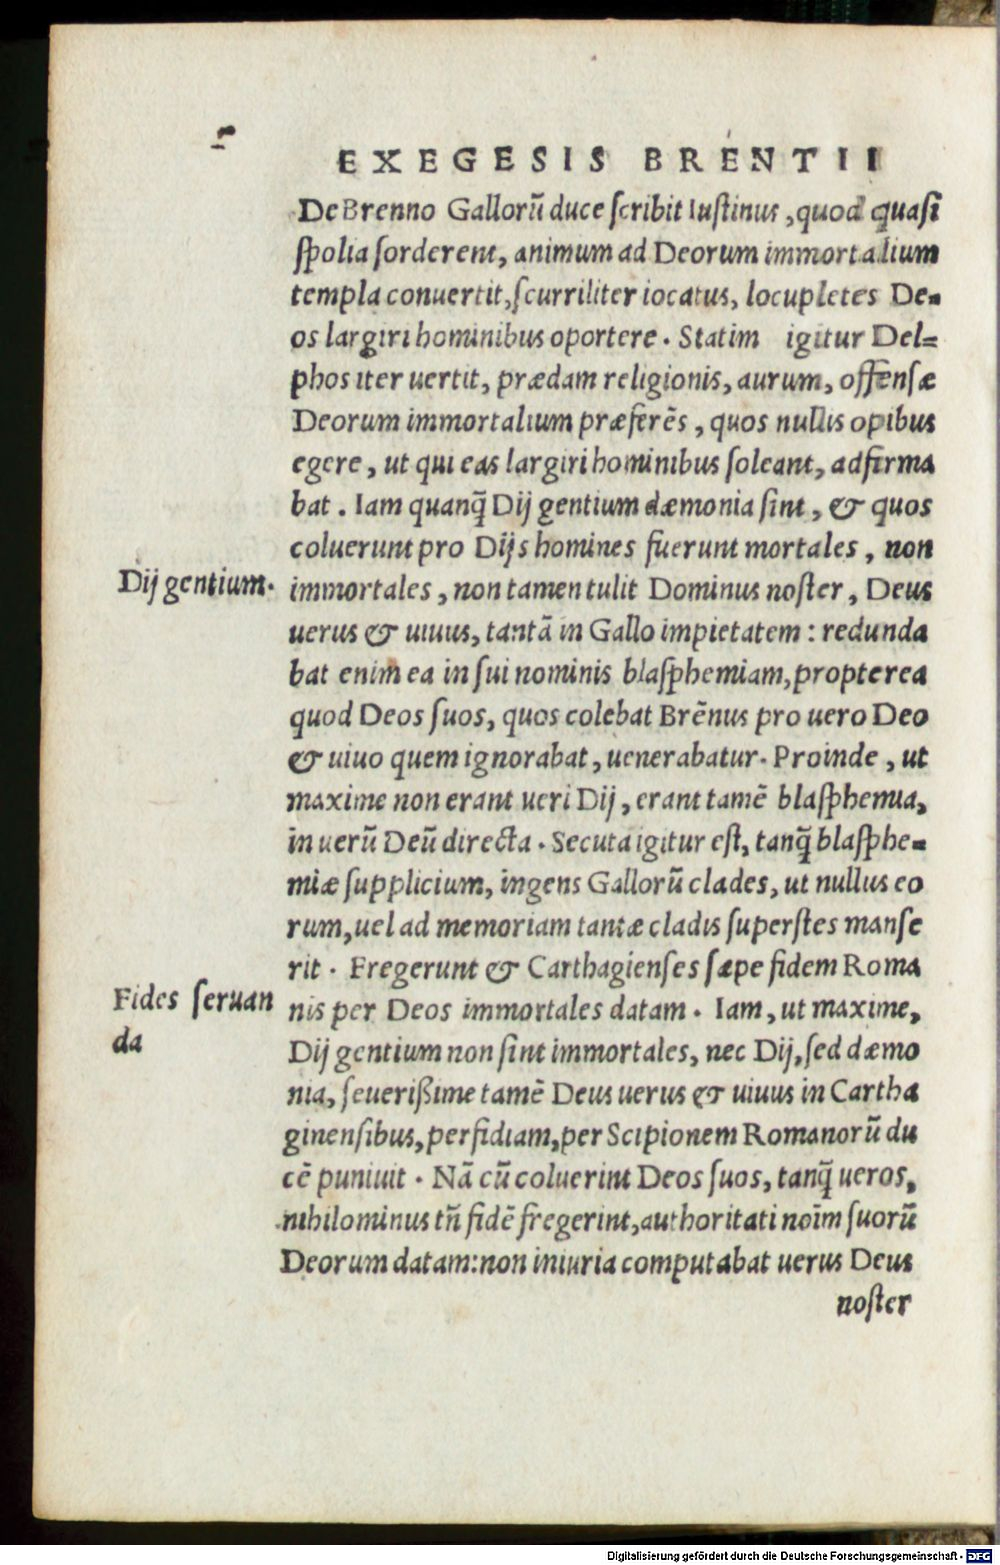 EXEGESIS BRENTII
De Brenno Gallorũ duce ſcribit Iuſtinus, quod quaſi
ſpolia ſorderent, animum ad Deorum immortalium
templa conuertit, ſcurriliter iocatus, locupletes De-
os largiri hominibus oportere. Statim igitur Del=
phos iter uertit, prædam religionis, aurum, offenſæ
Deorum immortalium præferẽs, quos nullis opibus
egere, ut qui eas largiri hominibus ſoleant, adfirma
bat. Iam quanq̃ Dij gentium dæmonia ſint, & quos
coluerunt pro Dijs homines fuerunt mortales, non
Dij gentium.
immortales, non tamen tulit Dominus noſter, Deus
uerus & uiuus, tantã in Gallo impietatem: redunda
bat enim ea in ſui nominis blaſphemiam, propterea
quod Deos ſuos, quos colebat Brẽnus pro uero Deo
& uiuo quem ignorabat, uenerabatur. Proinde, ut
maxime non erant ueri Dij, erant tamẽ blaſphemia,
in uerũ Deũ directa. Secuta igitur eſt, tanq̃ blaſphe-
miæ ſupplicium, ingens Gallorũ clades, ut nullus eo
rum, uel ad memoriam tantæ cladis ſuperſtes manſe
rit. Fregerunt & Carthagienſes ſæpe fidem Roma
Fides ſeruan
da
nis per Deos immortales datam. Iam, ut maxime,
Dij gentium non ſint immortales, nec Dij, ſed dæmo
nia, ſeuerißime tamẽ Deus uerus & uiuus in Cartha
ginenſibus, perfidiam, per Scipionem Romanorũ du
cẽ puniuit. Nã cũ coluerint Deos ſuos, tanq̃ ueros,
nihilominus tñ fidẽ fregerint, authoritati noĩm ſuorũ
Deorum datam: non iniuria computabat uerus Deus
noſter
Digitalisierung gefördert durch die Deutsche Forschungsgemeinschaft - DFG